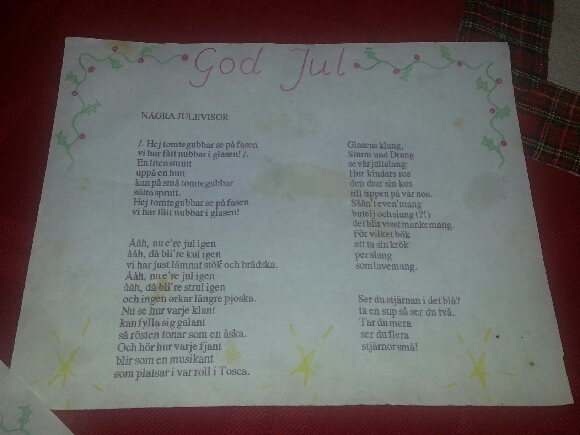 God Jul
NÅGRA JULEVISOR
/. Hej tomtegubbar se på fasen
vi har fått nubbar i glasen! /.
En liten smutt
uppå en hutt
kan på små tomtegubbar
sätta sprutt.
Hej tomtegubbar se på fasen
vi har fått nubbar i glasen!
Ååh, nu e're jul igen
ååh, då bli're kul igen
vi har just lämnat stök och brådska.
Ååh, nu e're jul igen
ååh, då bli're strul igen
och ingen orkar längre pjoska.
Nu se hur varje klant
kan fylla sig galant
så rösten tonar som en åska.
Och hör hur varje fjant
blir som en musikant
som platsar i var roll i Tosca.
Glasens klang,
Sturm und Drang
se vår jultalang:
Hur kindars ros
den drar sin kos
till tippen på vår nos.
Såån't even'mang
butelj och slang (?!)
det blir visst mankemang.
För vilket bök
att ta sin krök
per slang
som lavemang.
Ser du stjärnan i det blå?
ta en sup så ser du två.
Tar du mera
ser du flera
stjärnor små!